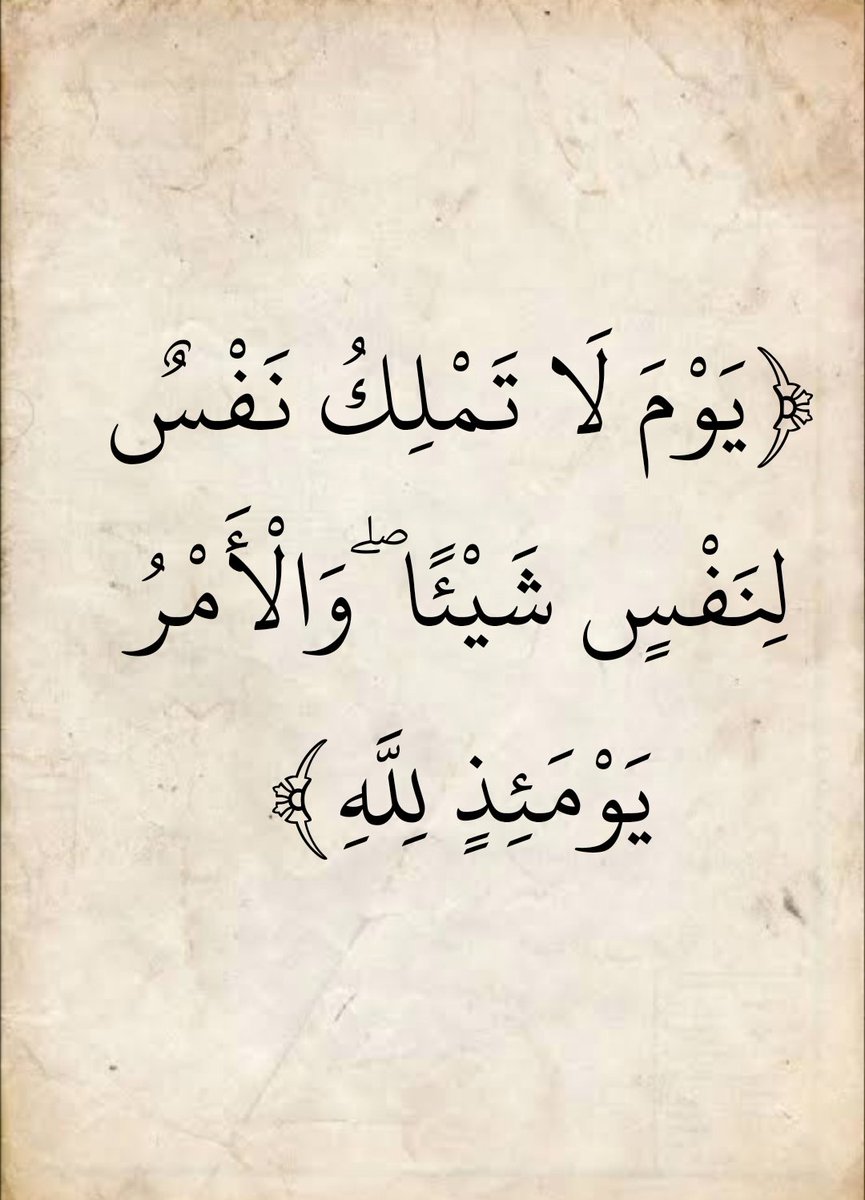 ﴿يَوْمَ لَا تَمْلِكُ نَفْسٌ
لِنَفْسٍ شَيْئًا ۖ وَالْأَمْرُ
يَوْمَئِذٍ لِلَّهِ﴾